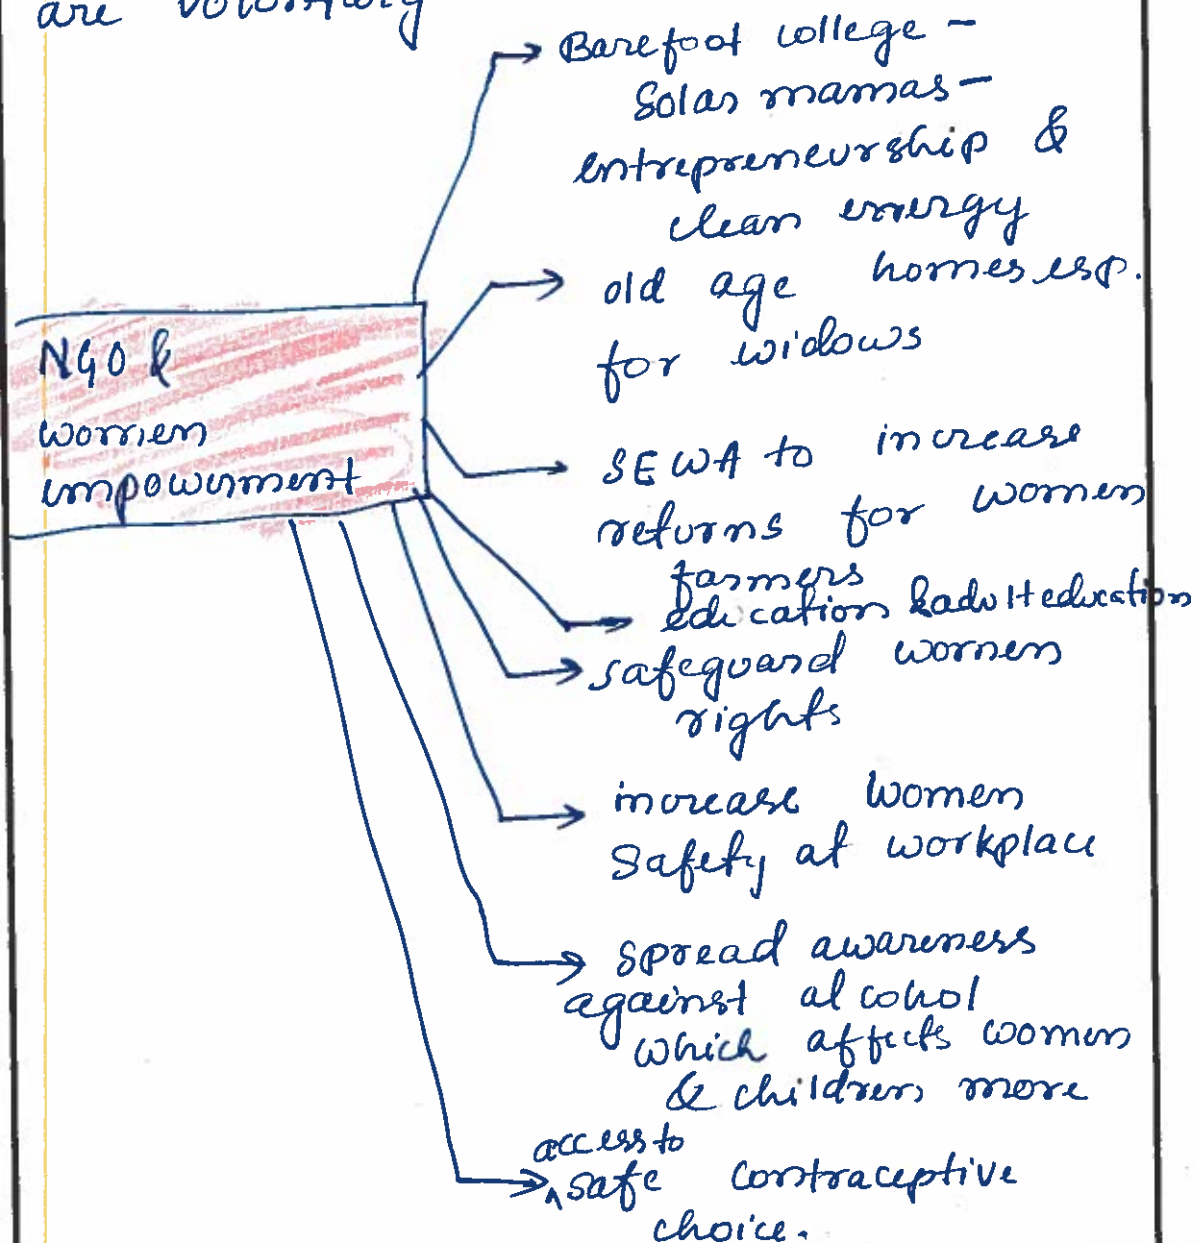 are voluntary
Barefoot college -
Solar mamas -
entrepreneurship &
clean energy
old age homes esp.
for widows
NGO &
women
empowerment
SEWA to increase
returns for women
farmers
education & adult education
safeguard women
rights
increase women
Safety at workplace
spread awareness
against alcohol
which affects women
& children more
access to
^ safe contraceptive
choice.